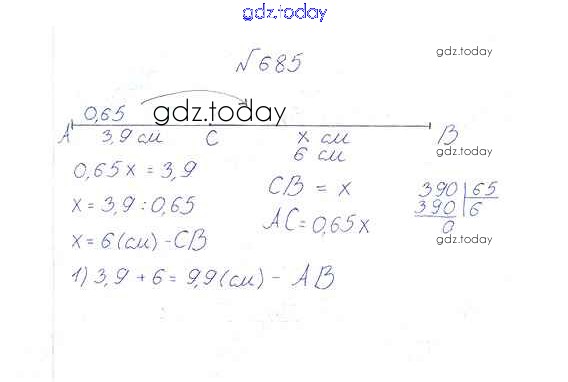 gdz.today
№685
gdz.today
0,65
gdz.today
A 3,9 см C x см B
6 см
0,65x = 3,9
CB = x
390 65
x = 3,9 : 0,65
AC = 0,65x
390 6
0
x = 6 (см) - CB
gdz.today
1) 3,9 + 6 = 9,9 (см) - AB